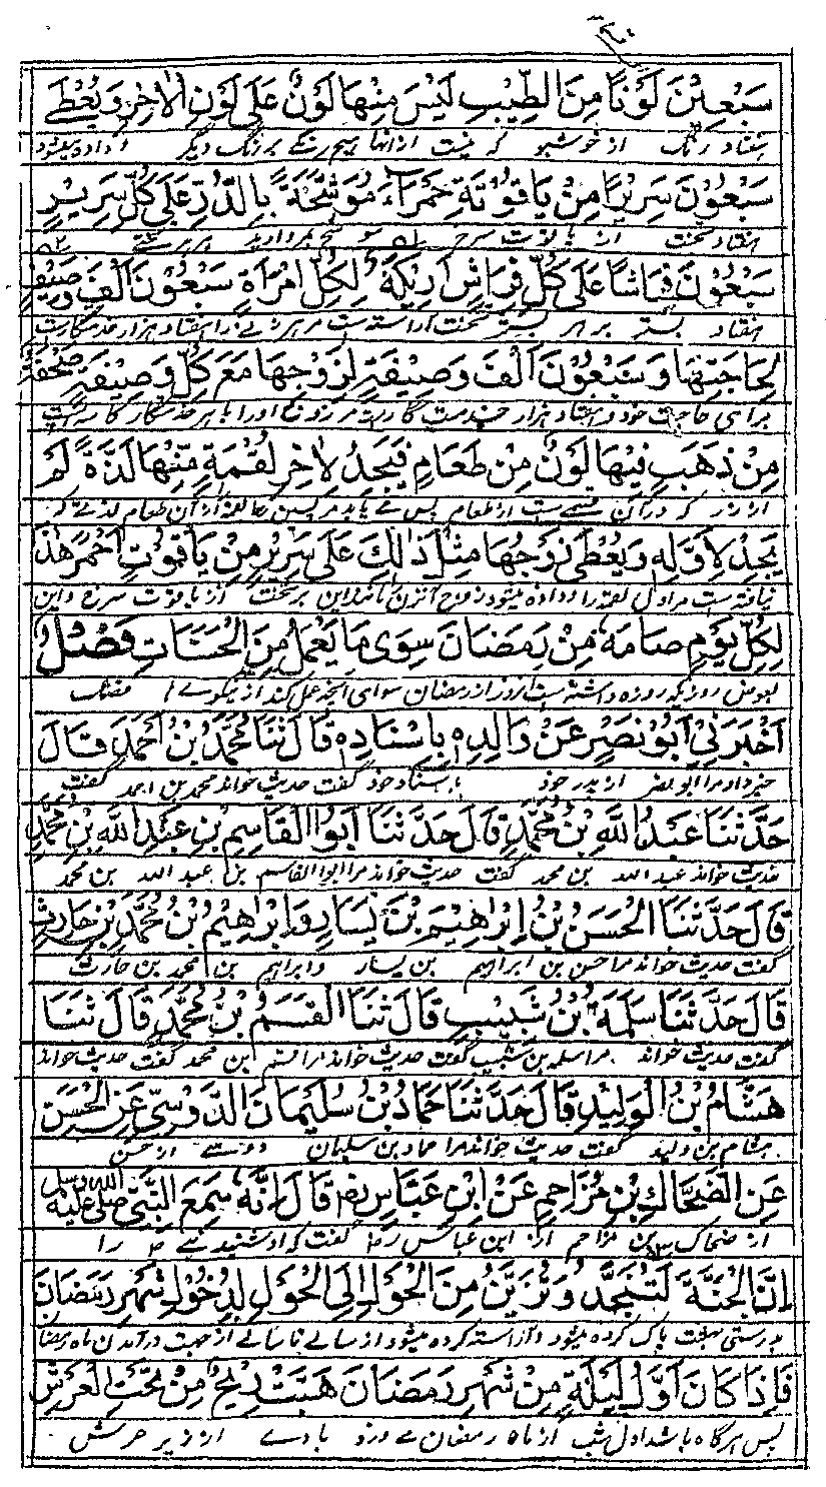 سَبْعِيْنَ لَوْنًا مِنَ الطِّيْبِ لَيْسَ مِنْهَا لَوْنٌ عَلَى لَوْنِ الْاٰخِرِ وَيُعْطٰے
هفتاد رنگ از خوشبو که نیست از انها هیچ رنگے بر رنگ دیگر و داده میشود
سَبْعُوْنَ سَرِيْرًا مِنْ يَاقُوْتَةٍ حَمْرَآءَ مُوَشَّحَةً بِالدُّرِّ عَلَى كُلِّ سَرِيْرٍ
هفتاد تخت از یاقوت سرخ بر هر تختے
سَبْعُوْنَ فِرَاشًا عَلَى كُلِّ فِرَاشٍ اَرِيْكَةٌ لِكُلِّ امْرَاَةٍ سَبْعُوْنَ اَلْفَ وَصِيْفَةٍ
هفتاد بستر بر هر بستر تخت آراسته است مر هر زنے را هفتاد هزار خدمتگارست
لِحَاجَتِهَا وَسَبْعُوْنَ اَلْفَ وَصِيْفَةٍ لِزَوْجِهَا مَعَ كُلِّ وَصِيْفَةٍ صَحْفَةٌ
برای حاجت خود و هفتاد هزار خدمت گارست مر زوج اورا با هر خدمتگار کاسه است
مِنْ ذَهَبٍ فِيْهَا لَوْنٌ مِنْ طَعَامٍ فَيَجِدُ لِاٰخِرِ لُقْمَةٍ مِّنْهَا لَذَّةً لَمْ
از زر که در آن قسمے ست از طعام پس مے یابد مر پسین لقمه از آن طعام لذتے که
يَجِدْ لِاَوَّلِهٖ وَيُعْطٰى زَوْجُهَا مِثْلَ ذٰلِكَ عَلَى سَرِيْرٍ مِنْ يَاقُوْتٍ اَحْمَرَ هٰذَا
نیافته است مر اول لقمه را و داده میشود زوج آنزن را مانند این بر تخت از یاقوت سرخ و این
لِكُلِّ يَوْمٍ صَامَهٗ مِنْ رَمَضَانَ سِوٰى مَا يَعْمَلُ مِنَ الْحَسَنَاتِ فَصْلٌ
بعوض روزیکه روزه داشته است آنروز از رمضان سوای آنچه عمل کند از نیکوے ها فصل
اَخْبَرَنِيْ اَبُوْ نَصْرٍ عَنْ وَالِدِهٖ بِاِسْنَادِهٖ قَالَ ثَنَا مُحَمَّدُ بْنُ اَحْمَدَ قَالَ
خبر داد مرا ابو نصر از پدر خود باسناد خود گفت حدیث خواند محمد بن احمد گفت
حَدَّثَنَا عَبْدُ اللّٰهِ بْنُ مُحَمَّدٍ قَالَ حَدَّثَنَا اَبُو الْقَاسِمِ بْنِ عَبْدِ اللّٰهِ بْنِ مُحَمَّدٍ
حدیث خواند عبد الله بن محمد گفت حدیث خواند مرا ابوالقاسم بن عبد الله بن محمد
قَالَ حَدَّثَنَا الْحَسَنُ بْنُ اِبْرٰهِيْمَ بْنَ يَسَارٍ وَاِبْرٰهِيْمُ بْنُ مُحَمَّدِ بْنِ حَارِثٍ
گفت حدیث خواند مرا حسن بن ابراهیم بن یسار و ابراهیم بن محمد بن حارث
قَالَ حَدَّثَنَا سَلَمَةُ بْنُ شَبِيْبٍ قَالَ ثَنَا الْقَسَمُ بْنُ مُحَمَّدٍ قَالَ ثَنَا
گفت حدیث خواند مرا سلمه بن شبیب گفت حدیث خواند مرا قسم ابن محمد گفت حدیث خواند
هَشَّامُ بْنُ الْوَلِيْدِ قَالَ حَدَّثَنَا حَمَّادُ بْنُ سُلَيْمَانَ الدَّوْسِيِّ عَنِ الْحَسَنِ
هشام بن ولید گفت حدیث خواند مرا حماد بن سلیمان دوسے از حسن
عَنِ الضَّحَّاكِ بْنِ مُزَاحِمٍ عَنْ ابْنِ عَبَّاسٍ رض قَالَ اِنَّهٗ سَمِعَ النَّبِيَّ صلى الله عليه وسلم
از ضحاک بن مزاحم از ابن عباس رض گفت که او شنید نبے ص را
اِنَّ الْجَنَّةَ لَتُنَجَّدُ وَتُزَيَّنُ مِنَ الْحَوْلِ اِلَى الْحَوْلِ لِدُخُوْلِ شَهْرِ رَمَضَانَ
بدرستی بهشت پاک کرده میشود و آراسته کرده میشود از سالے تا سالے از جهت درآمدن ماه رمضان
فَاِذَا كَانَ اَوَّلُ لَيْلَةٍ مِنْ شَهْرِ رَمَضَانَ هَبَّتْ رِيْحٌ مِنْ تَحْتِ الْعَرْشِ
پس هرگاه باشد اول شب از ماه رمضان مے وزد بادے از زیر عرش